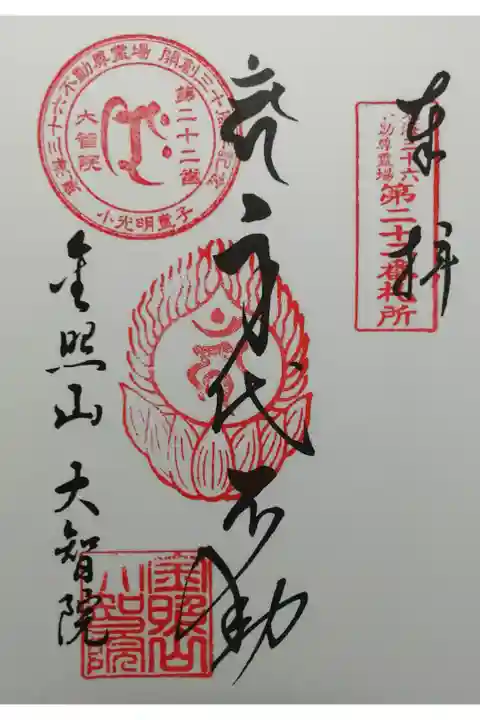 奉拝
東海三十六
不動尊霊場
第二十二番札所
厄除身代不動
東海三十六不動尊霊場 開創三十周年記念
第二十二番
大智院
小光明童子
金照山 大智院
金照山
大智院